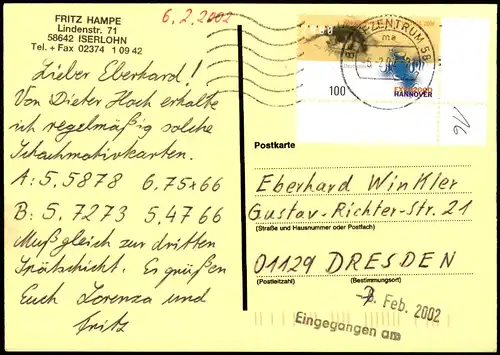 FRITZ HAMPE
Lindenstr. 71
58642 ISERLOHN
Tel. + Fax 02374 1 09 42
6.2.2002
Lieber Eberhard!
Von Dieter Hoch erhalte
ich regelmäßig solche
Schachmotivkarten.
A: 5.5878 6.75x66
B: 5.7273 5.4766
Muß gleich zur dritten
Spätschicht. Es grüßen
Euch Lorenza und
Fritz
BRIEFZENTRUM 58
EXPO2000
HANNOVER
100
Postkarte
Eberhard Winkler
Gustav-Richter-Str. 21
(Straße und Hausnummer oder Postfach)
01129 DRESDEN
(Postleitzahl) (Bestimmungsort)
Feb. 2002
Eingegangen am